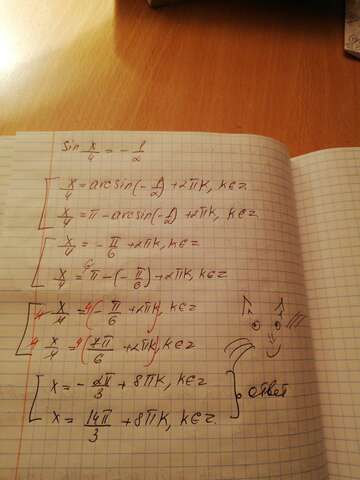 sin x/4 = -1/2
x/4 = arcsin(-1/2) + 2πk, k∈z
x/4 = π - arcsin(-1/2) + 2πk, k∈z.
x/4 = -π/6 + 2πk, k∈z
x/4 = π - (-π/6) + 2πk, k∈z
4 x/4 = 4(-π/6 + 2πk), k∈z
4 x/4 = 4(7π/6 + 2πk), k∈z
x = -2π/3 + 8πk, k∈z
x = 14π/3 + 8πk, k∈z.
ответ